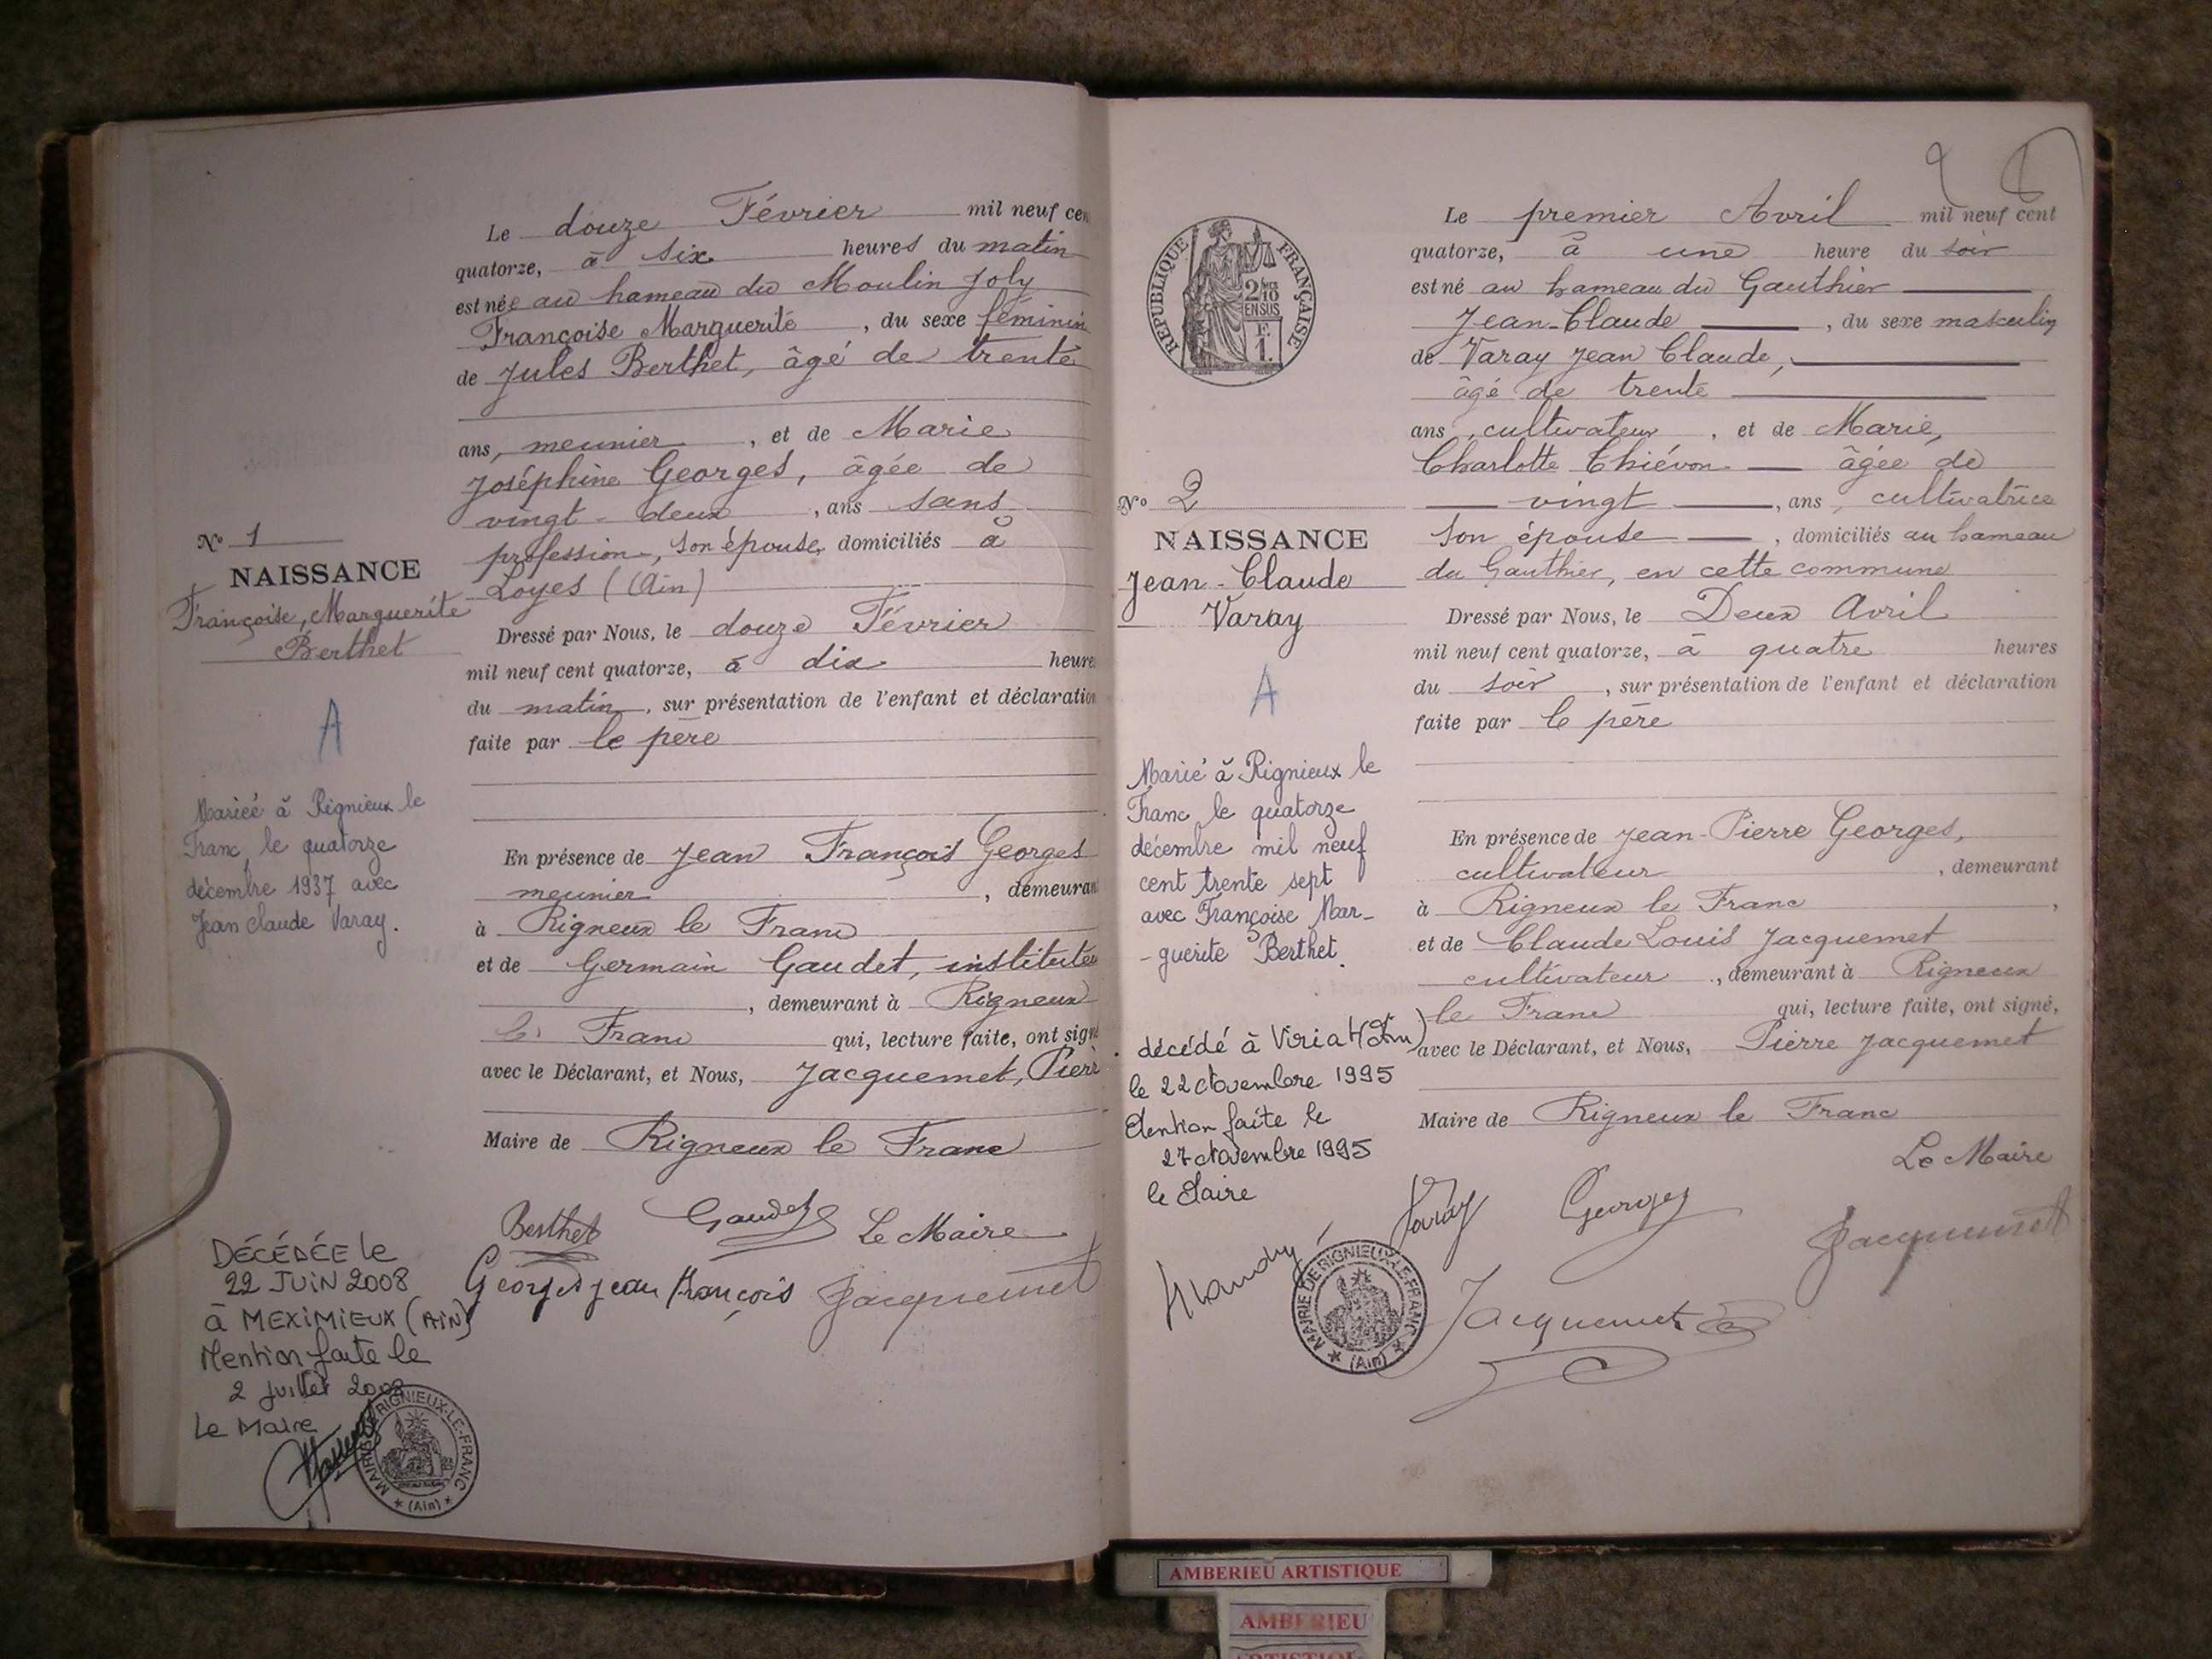 Le douze Février mil neuf cen
quatorze, à six heures du matin
est née au hameau du Moulin Joly
Françoise Marguerite, du sexe féminin
de Jules Berthet, âgé de trente
ans, meunier, et de Marie
Joséphine Georges, âgée de
vingt-deux, ans sans
profession, son épouse, domiciliés à
Loyes (Ain)
Nº 1
NAISSANCE
Françoise, Marguerite
Berthet
A
Dressé par Nous, le douze Février
mil neuf cent quatorze, à dix heure
du matin, sur présentation de l'enfant et déclaration
faite par le père
Mariée à Rignieux le
Franc, le quatorze
décembre 1937 avec
Jean Claude Varay.
En présence de Jean François Georges
meunier, demeuran
à Rigneux le Franc
et de Germain Gaudet, instituteu
, demeurant à Rigneux
le Franc qui, lecture faite, ont signé
avec le Déclarant, et Nous, Jacquemet, Pierr
Maire de Rigneux le Franc
Berthet Gaudet Le Maire
Georges jean françois Jacquemet
DÉCÉDÉE le
22 JUIN 2008
à MEXIMIEUX (AIN)
Mention faite le
2 juillet 2008
Le Maire
MAIRIE DE RIGNIEUX-LE-FRANC
(Ain)
28
REPUBLIQUE FRANÇAISE
2/10
EN SUS
F.
1.
Le premier Avril mil neuf cent
quatorze, à une heure du soir
est né au hameau du Gauthier
Jean-Claude, du sexe masculin
de Varay Jean Claude,
âgé de trente
ans, cultivateur, et de Marie,
Charlotte Thiévon âgée de
vingt, ans, cultivatrice
son épouse, domiciliés au hameau
du Gauthier, en cette commune
Nº 2
NAISSANCE
Jean-Claude
Varay
A
Dressé par Nous, le Deux Avril
mil neuf cent quatorze, à quatre heures
du soir, sur présentation de l'enfant et déclaration
faite par le père
Marié à Rignieux le
Franc le quatorze
décembre mil neuf
cent trente sept
avec Françoise Mar-
-guerite Berthet.
En présence de Jean-Pierre Georges,
cultivateur, demeurant
à Rigneux le Franc,
et de Claude Louis Jacquemet
cultivateur, demeurant à Rigneux
le Franc qui, lecture faite, ont signé,
avec le Déclarant, et Nous, Pierre Jacquemet
Maire de Rigneux le Franc
Le Maire
décédé à Viriat (Ain)
le 22 Novembre 1995
Mention faite le
27 Novembre 1995
le Maire
Varay Georges Jacquemet
Jacquemet
MAIRIE DE RIGNIEUX-LE-FRANC
(Ain)
AMBERIEU ARTISTIQUE
AMBERIEU
ARTISTIQUE